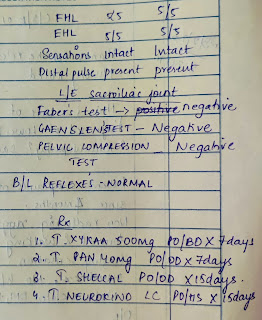 EHL 5/5 5/5
EHL 5/5 5/5
Sensations Intact Intact
Distal pulse present present
L/E sacroiliac joint
Faber's test → positive negative
GAENSLENS TEST - Negative
PELVIC COMPRESSION - Negative
TEST
B/L REFLEXES - NORMAL
Rx
1. T. XYKAA 500mg PO/BD X 7 days
2. T. PAN 40mg PO/OD X 7 days
3. T. SHELCAL PO/OD X 15 days.
4. T. NEUROKIND LC PO/HS X 15 days